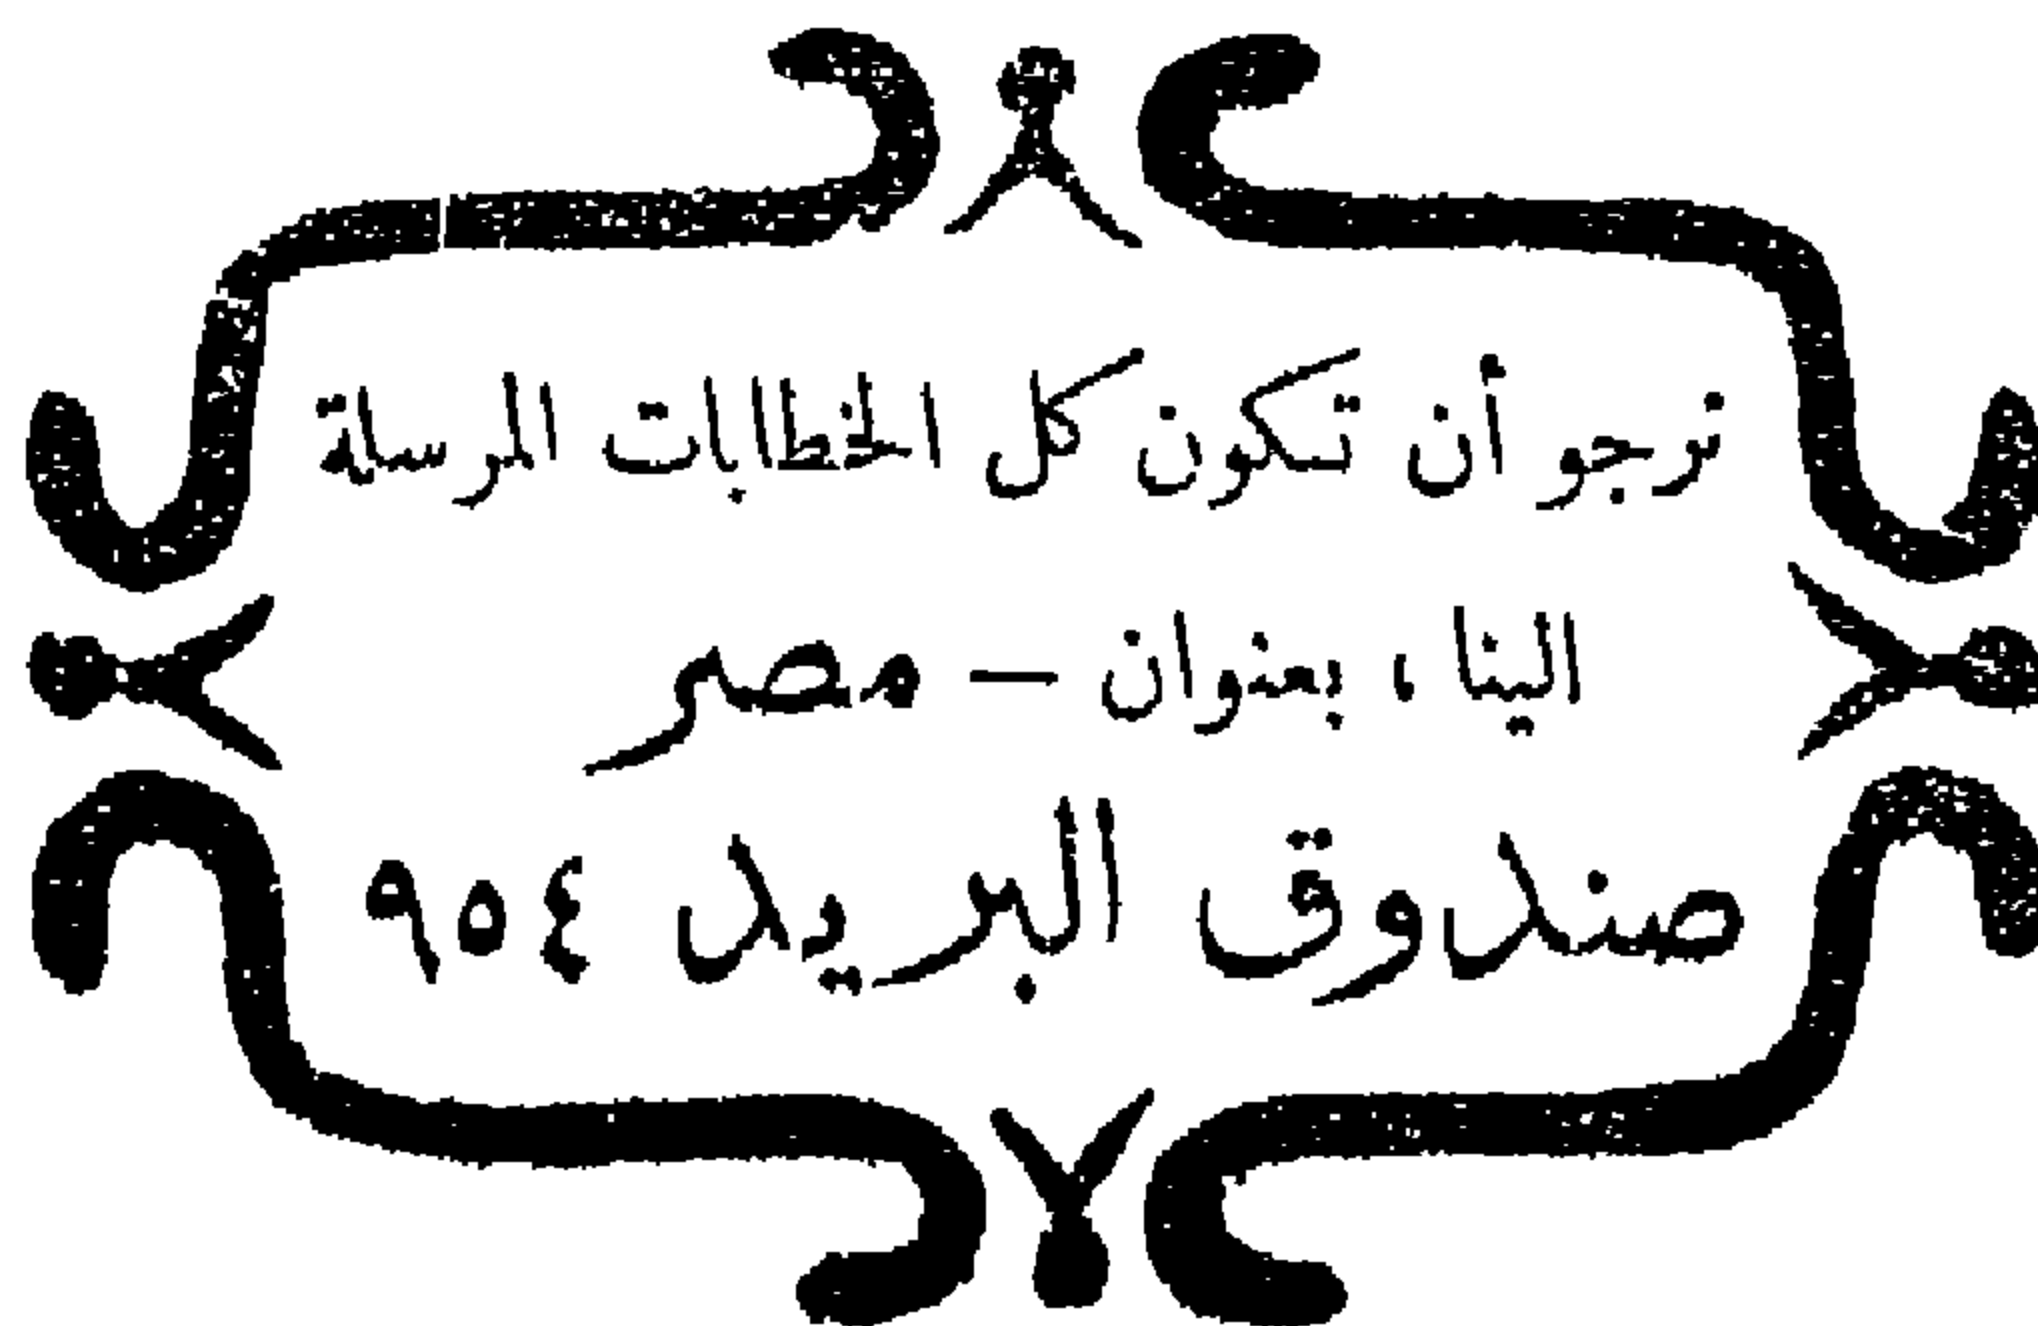 نرجو أن تكون كل الخطابات المرسلة
الينا، بعنوان — مصر
صندوق البريد ٩٥٤